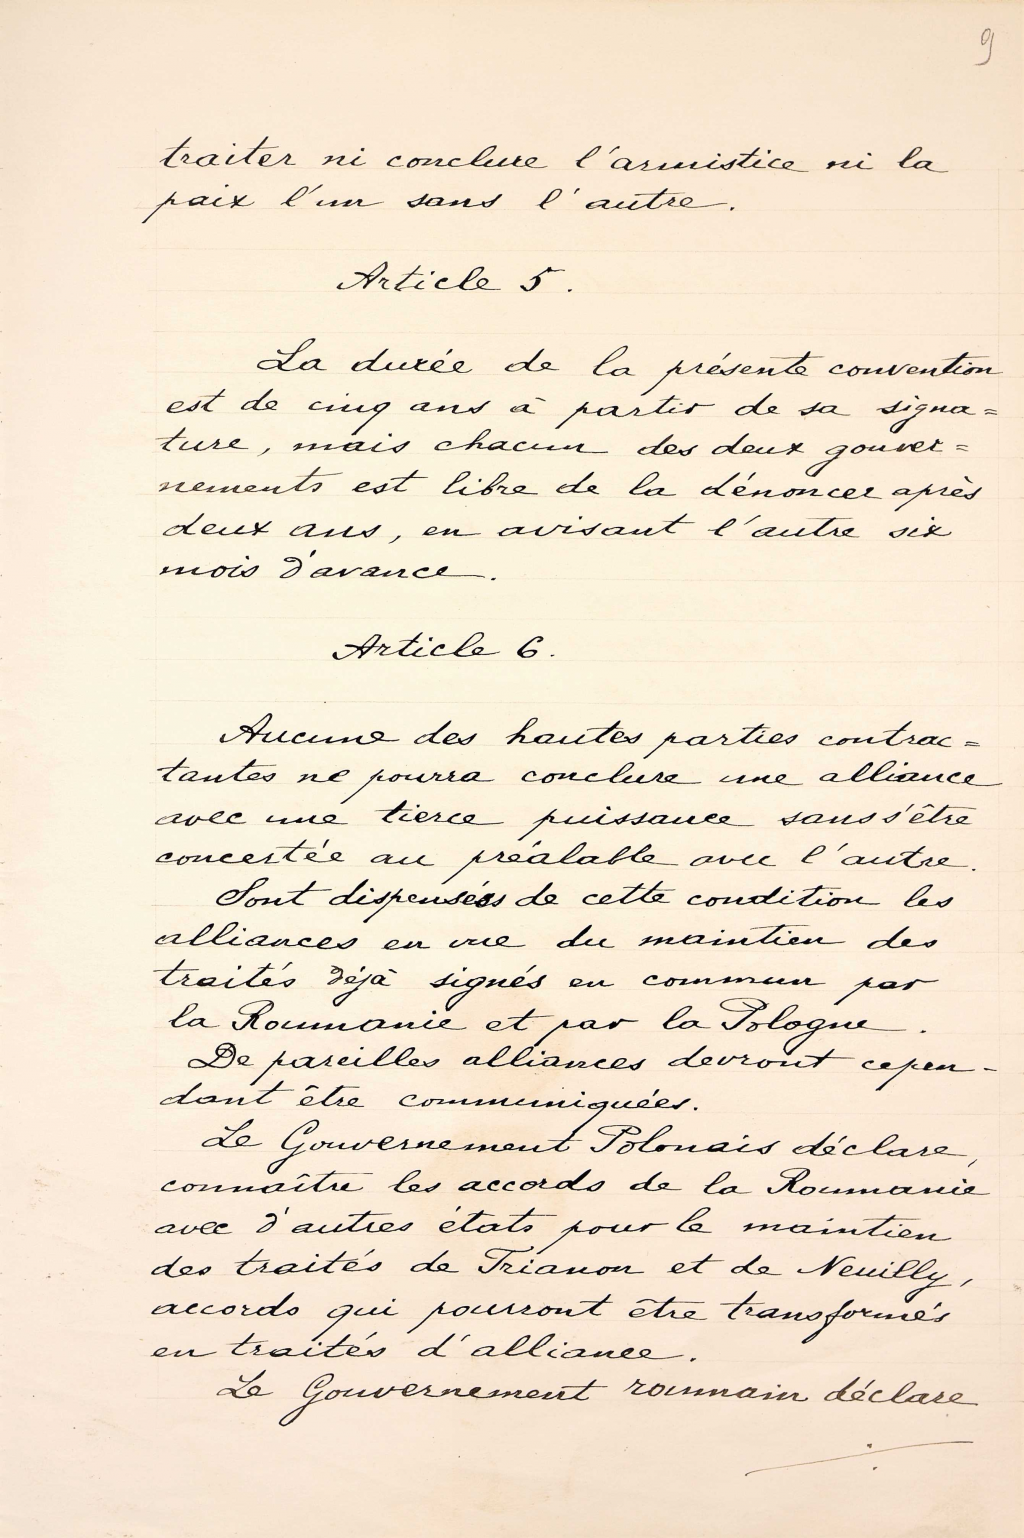 9
traiter ni conclure l'armistice ni la
paix l'un sans l'autre.
Article 5.
La durée de la présente convention
est de cinq ans à partir de sa signa=
ture, mais chacun des deux gouver=
nements est libre de la dénoncer après
deux ans, en avisant l'autre six
mois d'avance.
Article 6.
Aucune des hautes parties contrac=
tantes ne pourra conclure une alliance
avec une tierce puissance sans s'être
concertée au préalable avec l'autre.
Sont dispensées de cette condition les
alliances en vue du maintien des
traités déjà signés en commun par
la Roumanie et par la Pologne.
De pareilles alliances devront cepen-
dant être communiquées.
Le Gouvernement Polonais déclare,
connaître les accords de la Roumanie
avec d'autres états pour le maintien
des traités de Trianon et de Neuilly,
accords qui pourront être transformés
en traités d'alliance.
Le Gouvernement roumain déclare